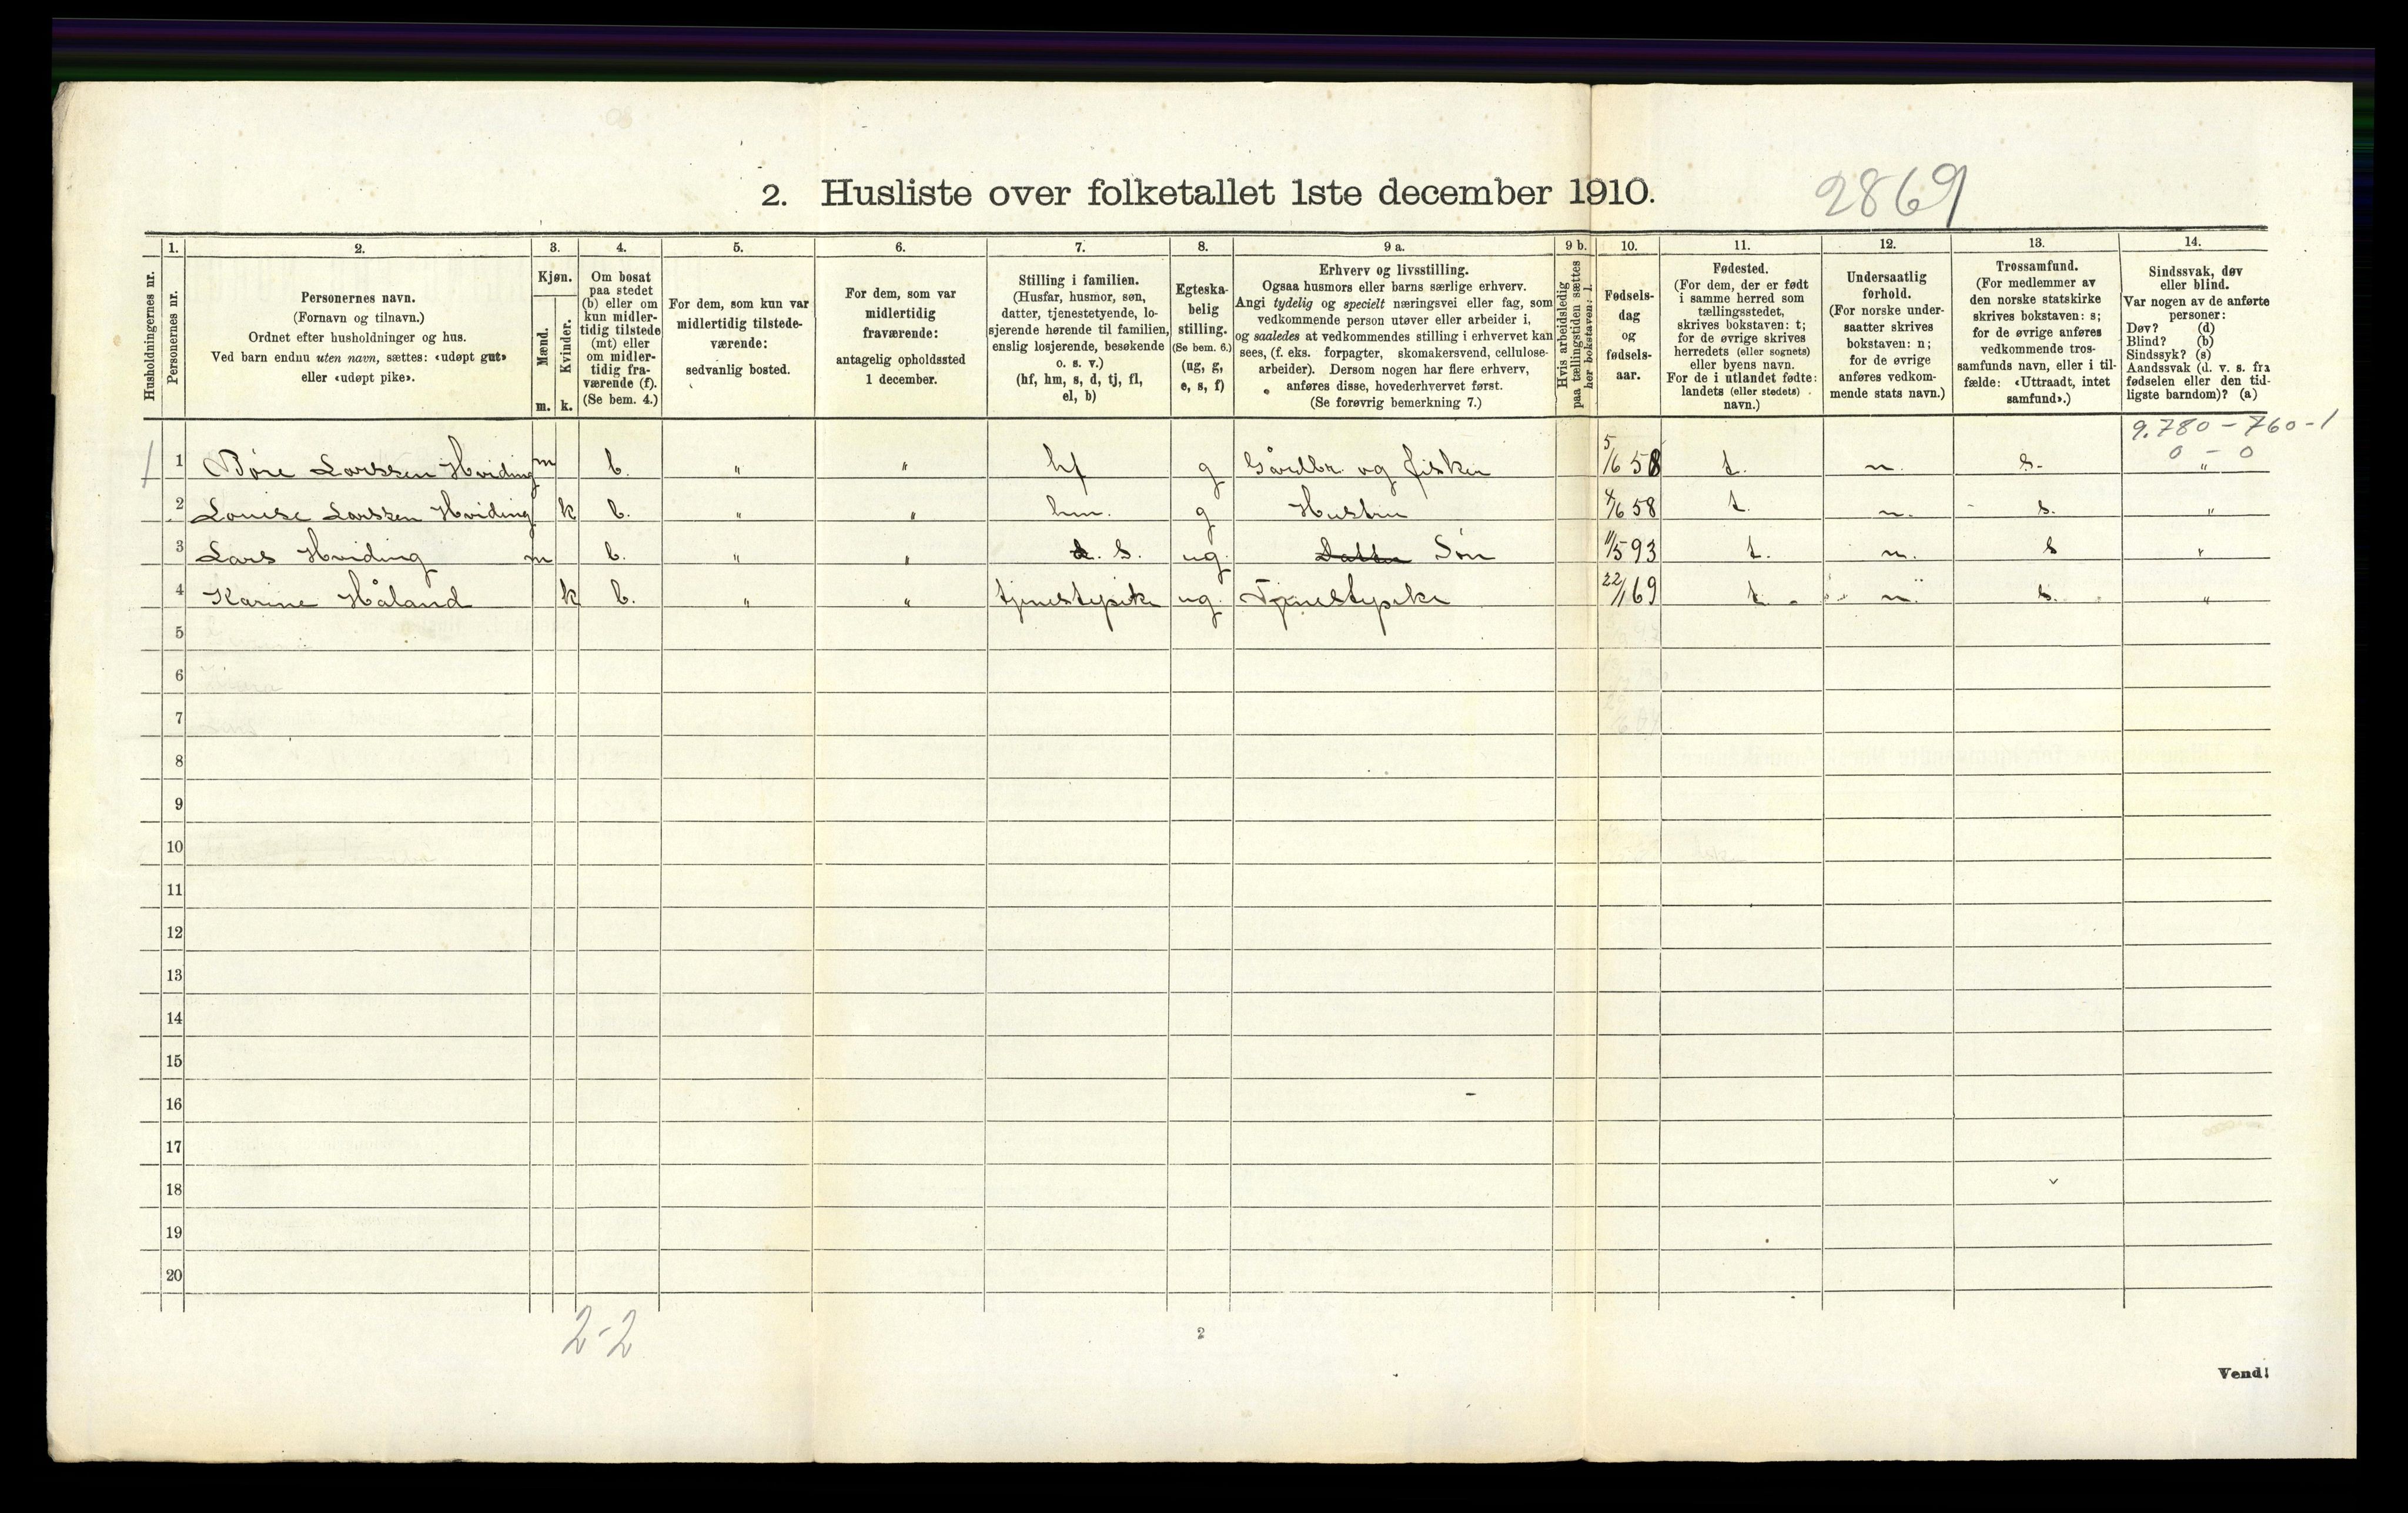 2. Husliste over folketallet 1ste december 1910.
2869
Husholdningernes nr.
1.
Personernes nr.
2.
Personernes navn.
(Fornavn og tilnavn.)
Ordnet efter husholdninger og hus.
Ved barn endnu uten navn, sættes: «udøpt gut»
eller «udøpt pike».
3.
Kjøn.
Mænd.
m.
Kvinder.
k.
4.
Om bosat
paa stedet
(b) eller om
kun midler-
tidig tilstede
(mt) eller
om midler-
tidig fra-
værende (f).
(Se bem. 4.)
5.
For dem, som kun var
midlertidig tilstede-
værende:
sedvanlig bosted.
6.
For dem, som var
midlertidig
fraværende:
antagelig opholdssted
1 december.
7.
Stilling i familien.
(Husfar, husmor, søn,
datter, tjenestetyende, lo-
sjerende hørende til familien,
enslig losjerende, besøkende
o. s. v.)
(hf, hm, s, d, tj, fl,
el, b)
8.
Egteska-
belig
stilling.
(Se bem. 6.)
(ug, g,
e, s, f)
9 a.
Erhverv og livsstilling.
Ogsaa husmors eller barns særlige erhverv.
Angi tydelig og specielt næringsvei eller fag, som
vedkommende person utøver eller arbeider i,
og saaledes at vedkommendes stilling i erhvervet kan
sees, (f. eks. forpagter, skomakersvend, cellulose-
arbeider). Dersom nogen har flere erhverv,
anføres disse, hovederhvervet først.
(Se forøvrig bemerkning 7.)
9 b.
Hvis arbeidsledig
paa tællingstiden sættes
her bokstaven: l.
10.
Fødsels-
dag
og
fødsels-
aar.
11.
Fødested.
(For dem, der er født
i samme herred som
tællingsstedet,
skrives bokstaven: t;
for de øvrige skrives
herredets (eller sognets)
eller byens navn.
For de i utlandet fødte:
landets (eller stedets)
navn.)
12.
Undersaatlig
forhold.
(For norske under-
saatter skrives
bokstaven: n;
for de øvrige
anføres vedkom-
mende stats navn.)
13.
Trossamfund.
(For medlemmer av
den norske statskirke
skrives bokstaven: s;
for de øvrige anføres
vedkommende tros-
samfunds navn, eller i til-
fælde: «Uttraadt, intet
samfund».)
14.
Sindssvak, døv
eller blind.
Var nogen av de anførte
personer:
Døv? (d)
Blind? (b)
Sindssyk? (s)
Aandssvak (d. v. s. fra
fødselen eller den tid-
ligste barndom)? (a)
9.780 - 760 - 1
0 - 0
1 1 Böre Larssen Hviding m b. " " hf g Gårdbr. og fisker 5/6 58 t. n. s. "
2 Louise Larssen Hviding k b. " " hm. g Hustru 4/6 58 t. n. s. "
3 Lars Hviding m b. " " d. s. ug. Datter Sön 11/5 93 t. n. s "
4 Karine Håland k b. " " tjenestepike ug. Tjenestepike 22/1 69 t. n. s. "
5
6
7
8
9
10
11
12
13
14
15
16
17
18
19
20
2-2
2
Vend!